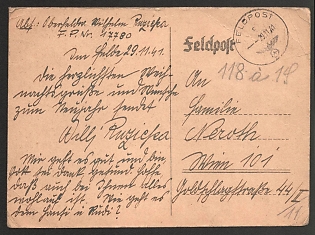 Abs: Oberfeldw. Wilhelm Ruzicka
F.P. Nr. 17780
Im Felde 29.11.41.
Die herzlichsten Weih-
nachtsgrüße und Wünsche
zum Neujahr sendet
Willj Ruzicka
Mir geht es gut und bin
Gott sei Dank gesund, hoffe
daß auch bei Ihnen Alles
wohlauf ist. Wie geht es
dem Hansi u. Rudi?
FELDPOST
Feldpost
118 a 19
An
Familie
Neroth
Wien 101
Goldschlagstraße 44/I
11